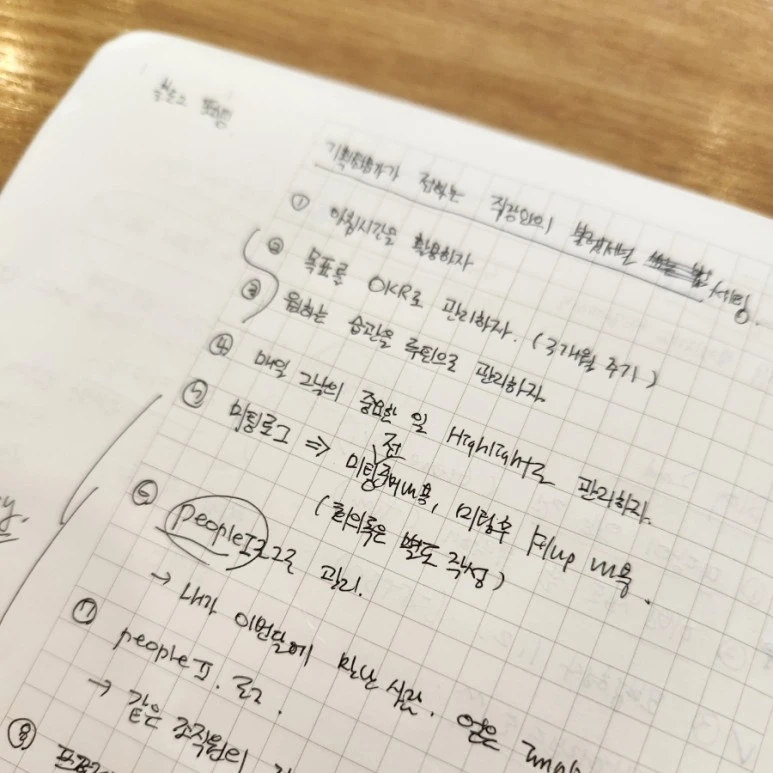 블로그
기획전문가가 전하는 직장인의 세팅.
① 아침시간을 활용하자
② 목표를 OKR로 관리하자. (3개월 주기)
③ 원하는 습관을 루틴으로 관리하자.
④ 매일 그날의 중요한 일 Highlight로 관리하자.
⑤ 미팅로그 ⇒ 미팅전 내용, 미팅후 내용.
(회의록은 별도 작성)
⑥ peopleI 로그로 관리.
→ 내가 이번달에 만난 사람. 얻은
⑦ peopleII. 로그.
→ 같은 조직원의
⑧
y.